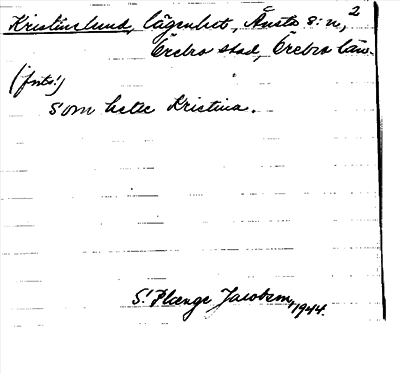 2
Kristinelund, lägenhet, Ånsta s:n,
Örebro stad, Örebro län.
(forts.)
som hette Kristina.
S. Plænge Jacobson, 1944.